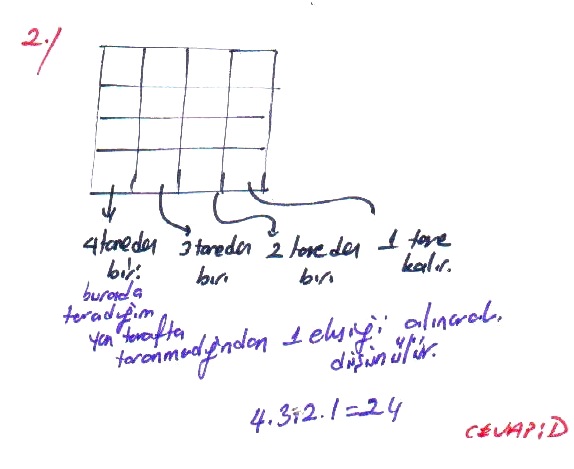 2./
4 taneden 3 taneden 2 taneden 1 tane
biri biri biri kalır.
burada
taradığım
yan tarafta
taranmadığından 1 eksiği alınarak,
düşünülür.
4.3.2.1=24
CEVAP:D